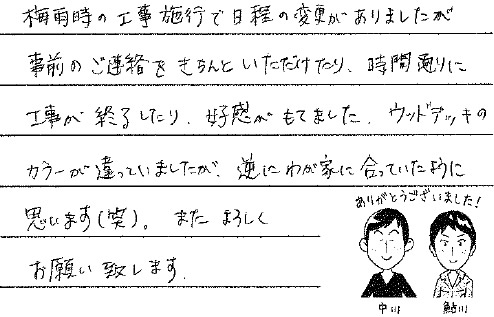 梅雨時の工事施行で日程の変更がありましたが
事前のご連絡をきちんといただけたり、時間通りに
工事が終了したり、好感がもてました。ウッドデッキの
カラーが違っていましたが、逆にわが家に合っていたように
思います(笑)。またよろしく
お願い致します。
ありがとうございました!
中川 鮎川